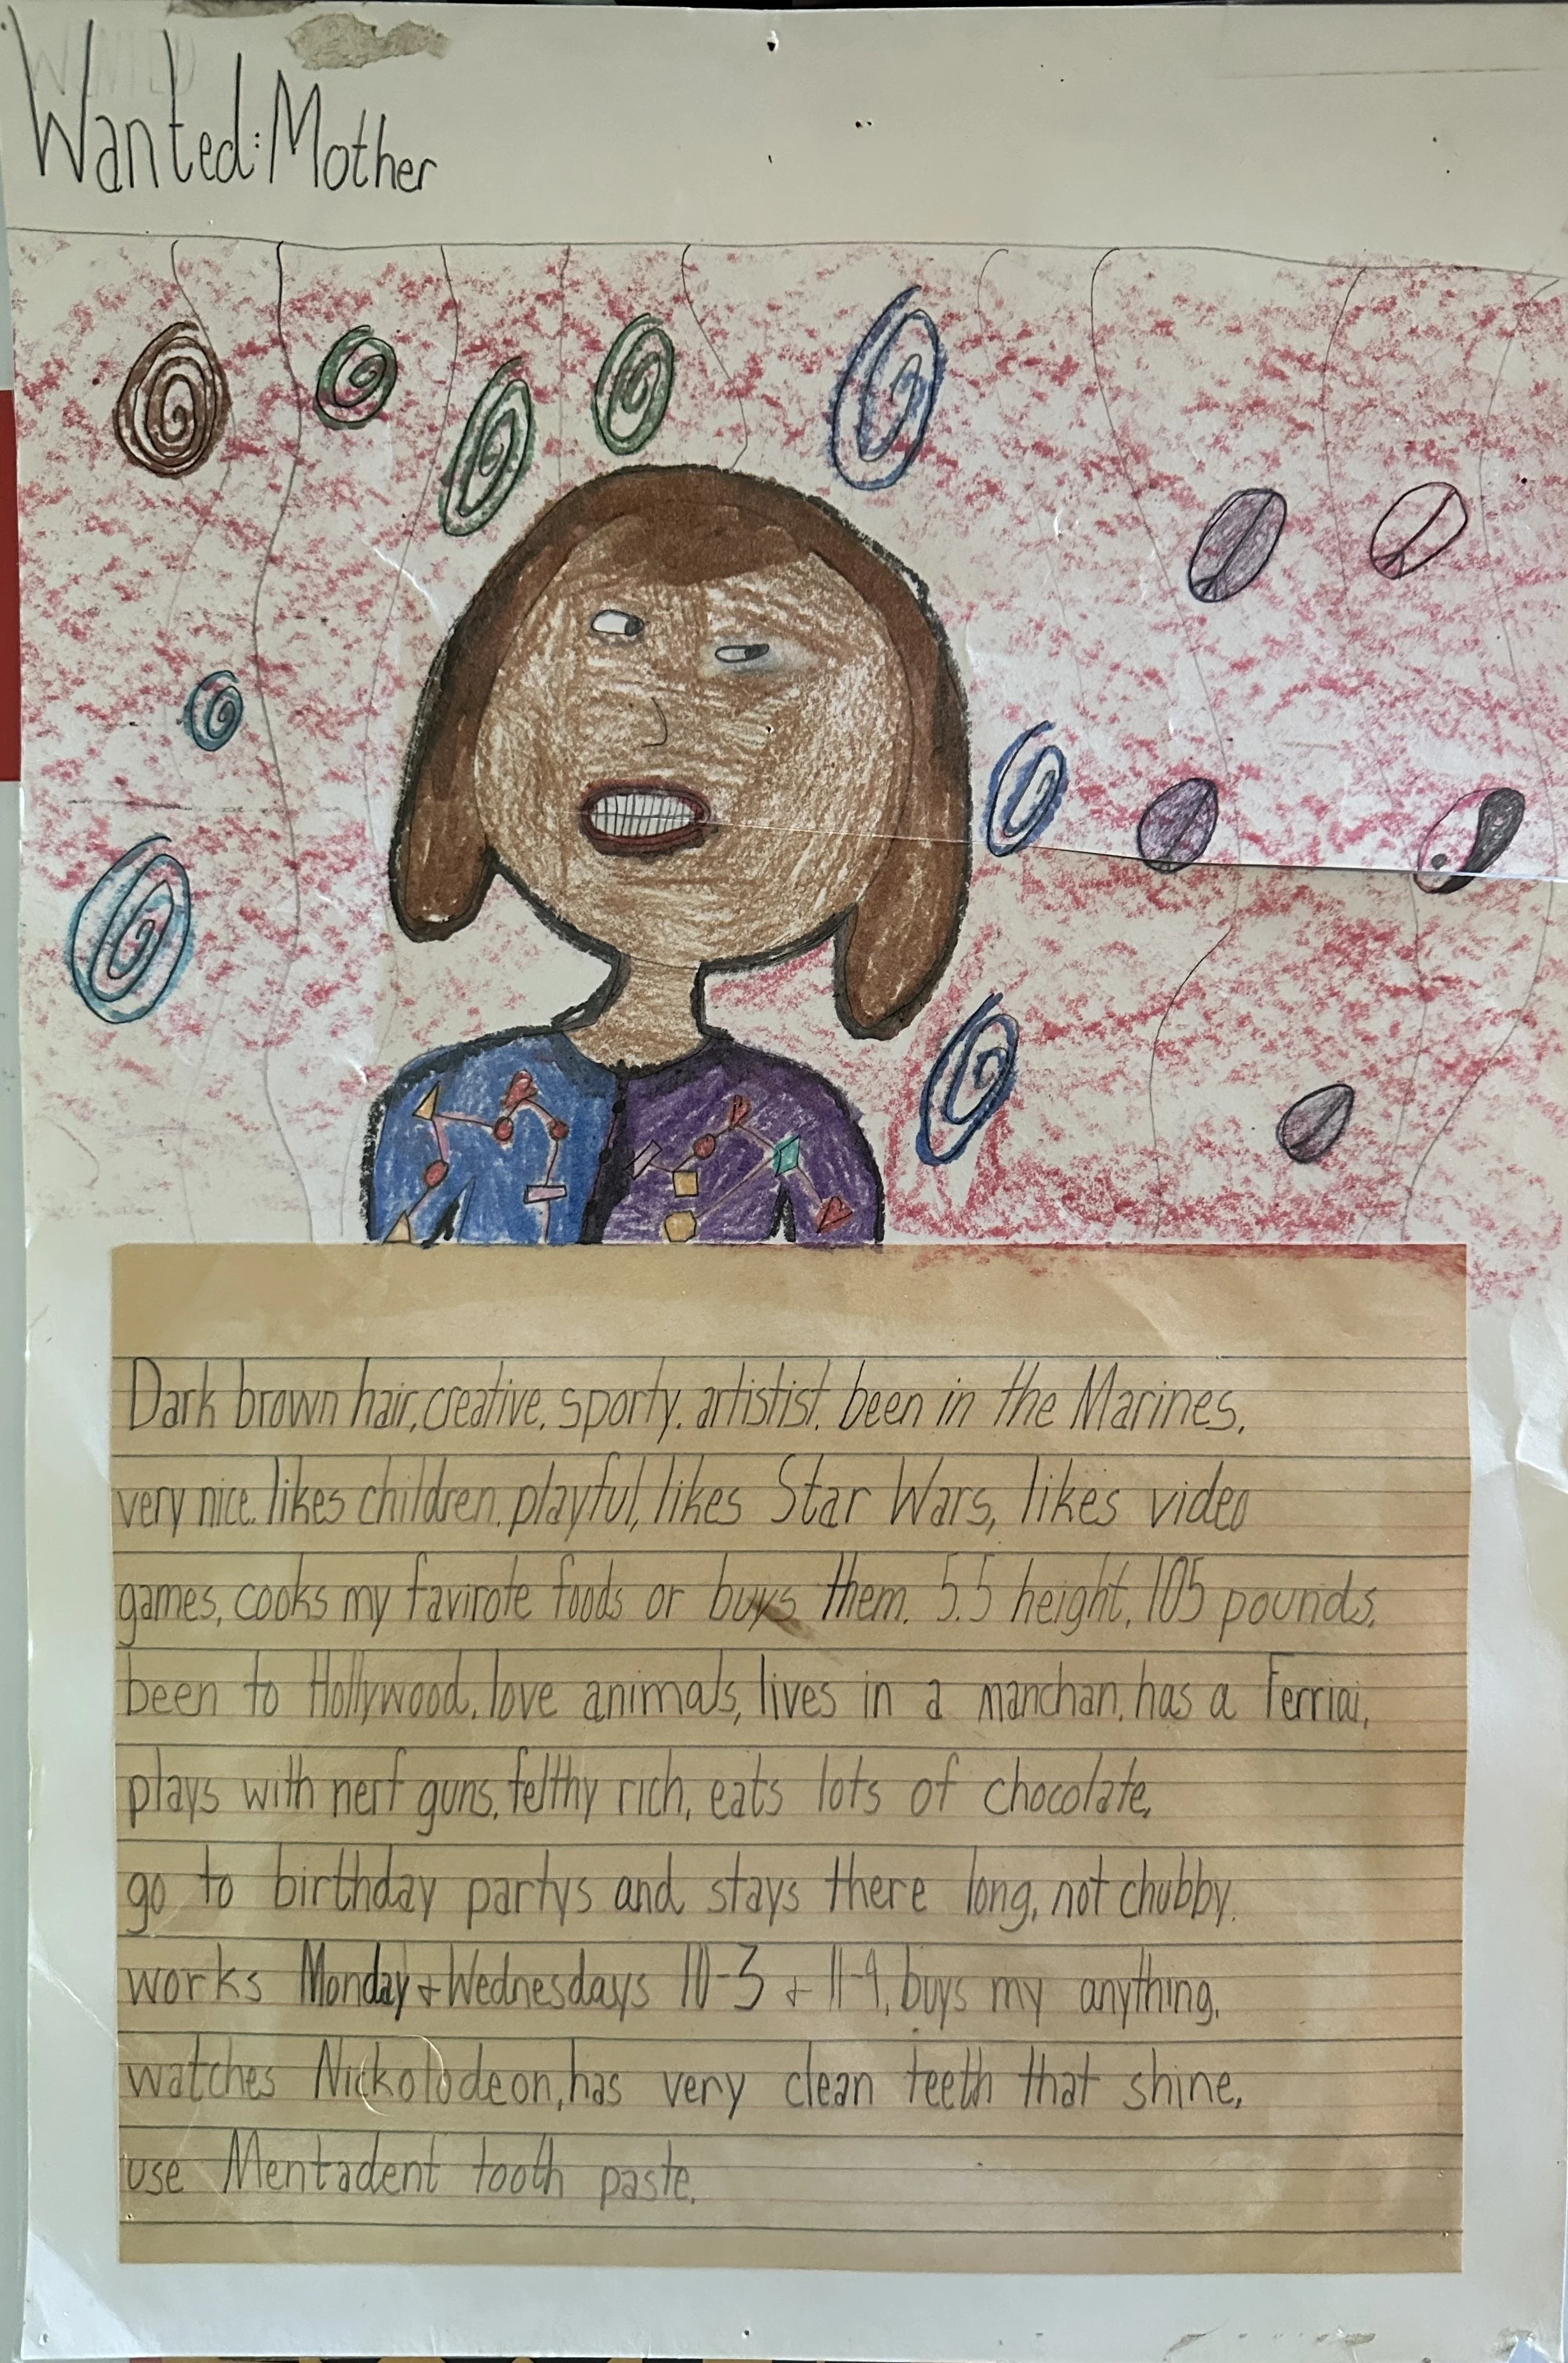 Wanted: Mother
Dark brown hair, creative, sporty, artistist, been in the Marines,
very nice, likes children, playful, likes Star Wars, likes video
games, cooks my favirote foods or buys them, 5.5 height, 105 pounds,
been to Hollywood, love animals, lives in a manchan, has a Ferriai,
plays with nerf guns, felthy rich, eats lots of chocolate,
go to birthday partys and stays there long, not chubby,
works Monday + Wednesdays 10-3 + 11-4, buys my anything,
watches Nickolodeon, has very clean teeth that shine,
use Mentadent tooth paste.